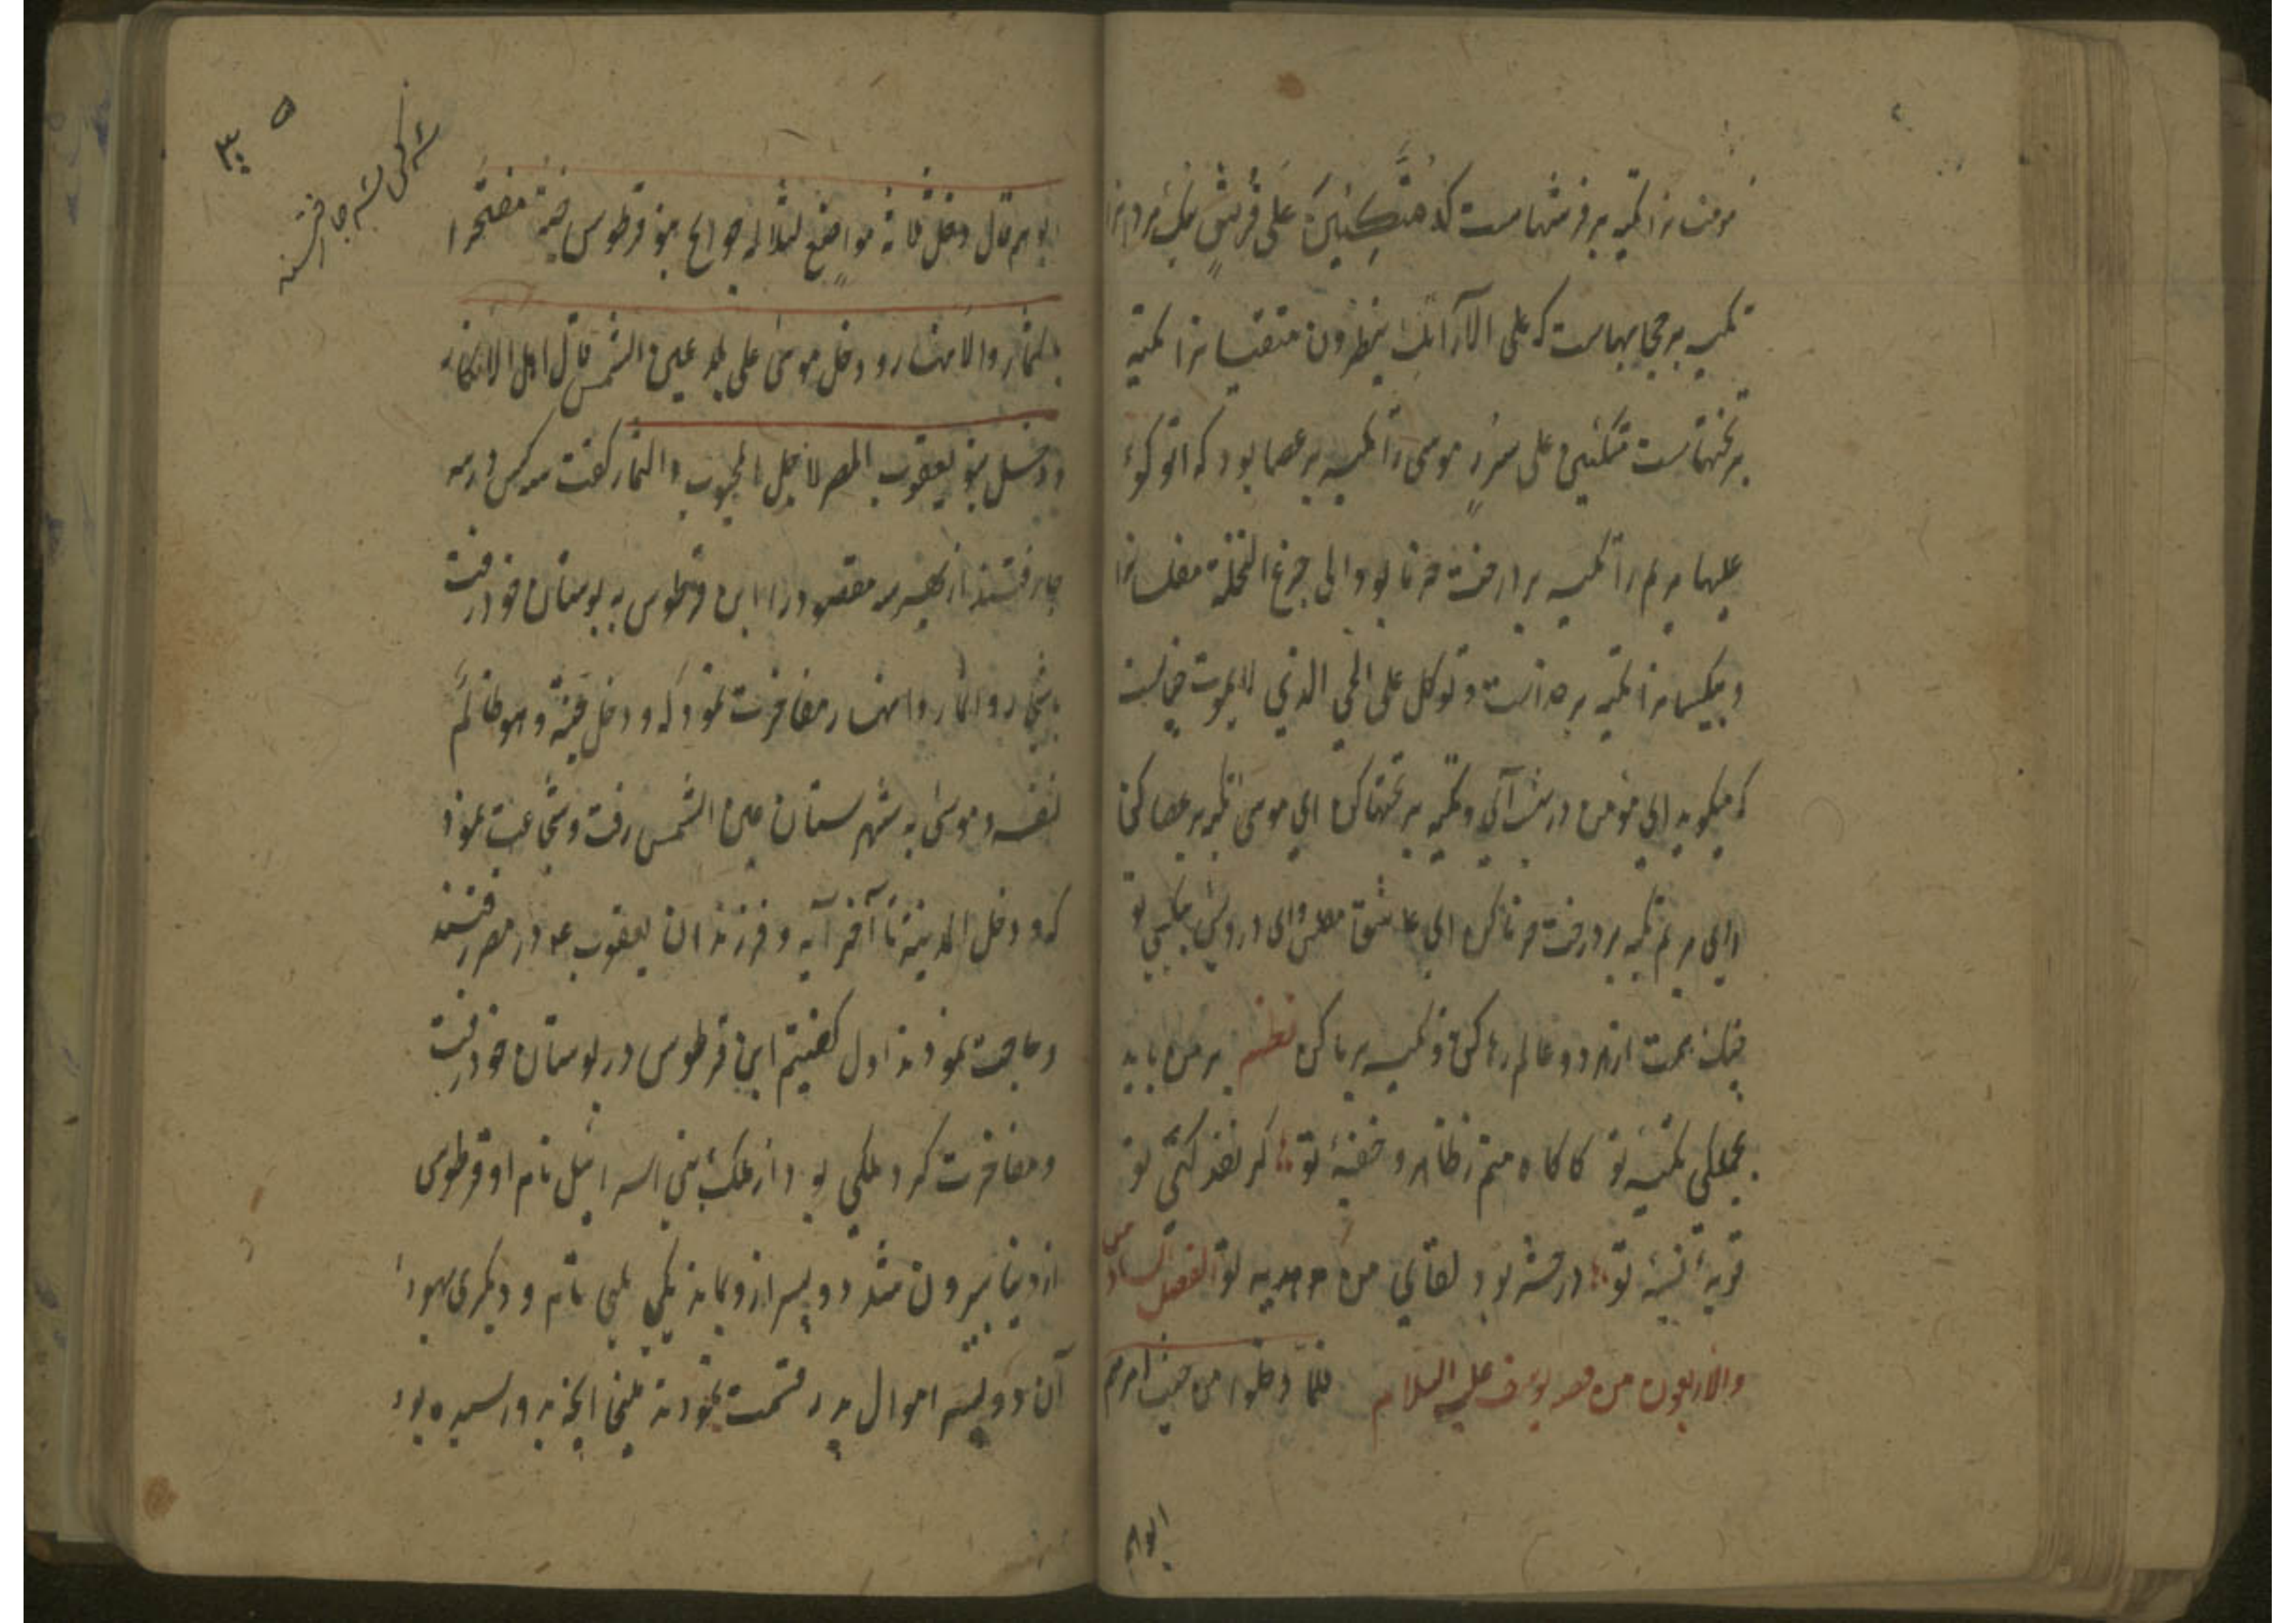 مومنانرا تکیه بر فرشهاست که مُتَّكِئِينَ عَلَى فُرُشٍ
تکیه بر حجابهاست که على الارآئك ینظرون متقیانرا تکیه
بر تختهاست متکئین على سُرُرٍ موسی را تکیه بر عصا بود که اتوکؤ
علیها مریم را تکیه بر درخت خرما بود الى جذع النخلة مفلسانرا
و بیکسانرا تکیه بر خداست و توکل على الحی الذی لا یموت چنانست
که میگوید ای مؤمن در بهشت آی و تکیه بر تختها کن ای موسی تکیه بر عصا کن
وای مریم تکیه بر درخت خرما کن ای عاشق مفلس وای درویش بیکس تو
همت از هر دو عالم رها کن و تکیه بر ما کن نظم بر من باید
بجملگی تکیه تو کاگاه منم ز ظاهر و خفیهٔ تو گر نقد کنی تو
توبهٔ نسیهٔ تو در حشر بود لقای من هدیه تو الفصل السادس
والاربعون من قصه یوسف علیه السلام فلمّا دخلوا من حیث امرهم
ابوهم
۳۰۵
سه کس بسه جا رفتند
ابوهم قال دخل ثلاثة مواضع لثلاثة حوایج ابن قرطوس جنته مفتخرا
بالثمار والانهار و دخل موسی على بلد عین الشمس قال اهل الانکار
و دخل بنو یعقوب المصر لاجل الحبوب والثمار گفت سه کس در سه
جا رفتند از بهر سه مقصود را ابن قرطوس به بوستان خود رفت
باشجار و اثمار و انهار مفاخرت نمود که و دخل جنته و هو ظالم
لنفسه و موسی به شهرستان عین الشمس رفت و شجاعت نمود
که و دخل المدینة تا آخر آیه و فرزندان یعقوب ع در مصر رفتند
و حاجت نمودند اول گفتیم ابن قرطوس در بوستان خود رفت
و مفاخرت کرد ملکی بود از ملک بنی اسرائیل نام او قرطوس
از دنیا بیرون شد دو پسر ازو بماند یکی نام و دیگری یهودا
آن دو پسر اموال پدر قسمت نمودند آنچه بدو رسیده بود